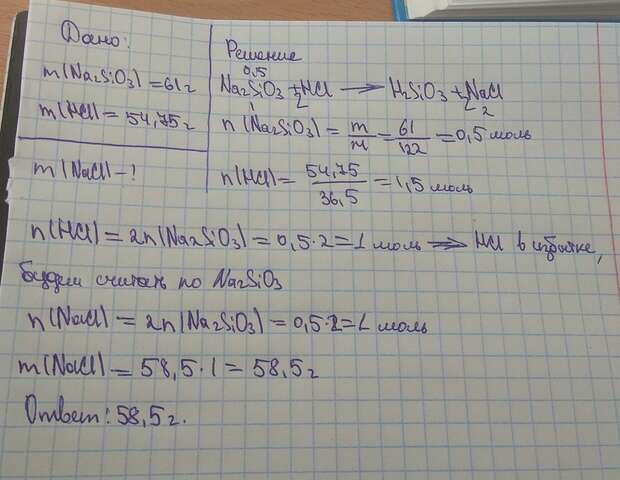 Дано:
m(Na2SiO3)=61г
m(HCl)=54,75г
m(NaCl)-?
Решение
0,5
Na2SiO3+2HCl → H2SiO3+2NaCl
1 2 2
n(Na2SiO3)=m/M=61/122=0,5моль
n(HCl)=54,75/36,5=1,5моль
n(HCl)=2n(Na2SiO3)=0,5·2=1моль ⇒ HCl в избытке,
будем считать по Na2SiO3
n(NaCl)=2n(Na2SiO3)=0,5·2=1 моль
m(NaCl)=58,5·1=58,5г
Ответ: 58,5г.